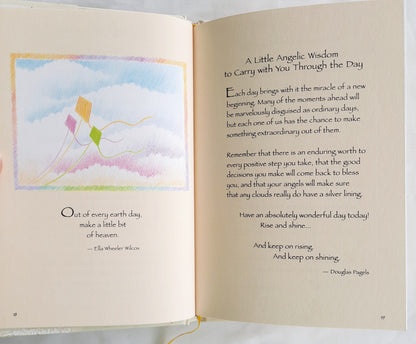 Out of every earth day,
make a little bit
of heaven.
— Ella Wheeler Wilcox
A Little Angelic Wisdom
to Carry with You Through the Day
Each day brings with it the miracle of a new
beginning. Many of the moments ahead will
be marvelously disguised as ordinary days,
but each one of us has the chance to make
something extraordinary out of them.
Remember that there is an enduring worth to
every positive step you take, that the good
decisions you make will come back to bless
you, and that your angels will make sure
that any clouds really do have a silver lining.
Have an absolutely wonderful day today!
Rise and shine...
And keep on rising,
And keep on shining.
— Douglas Pagels